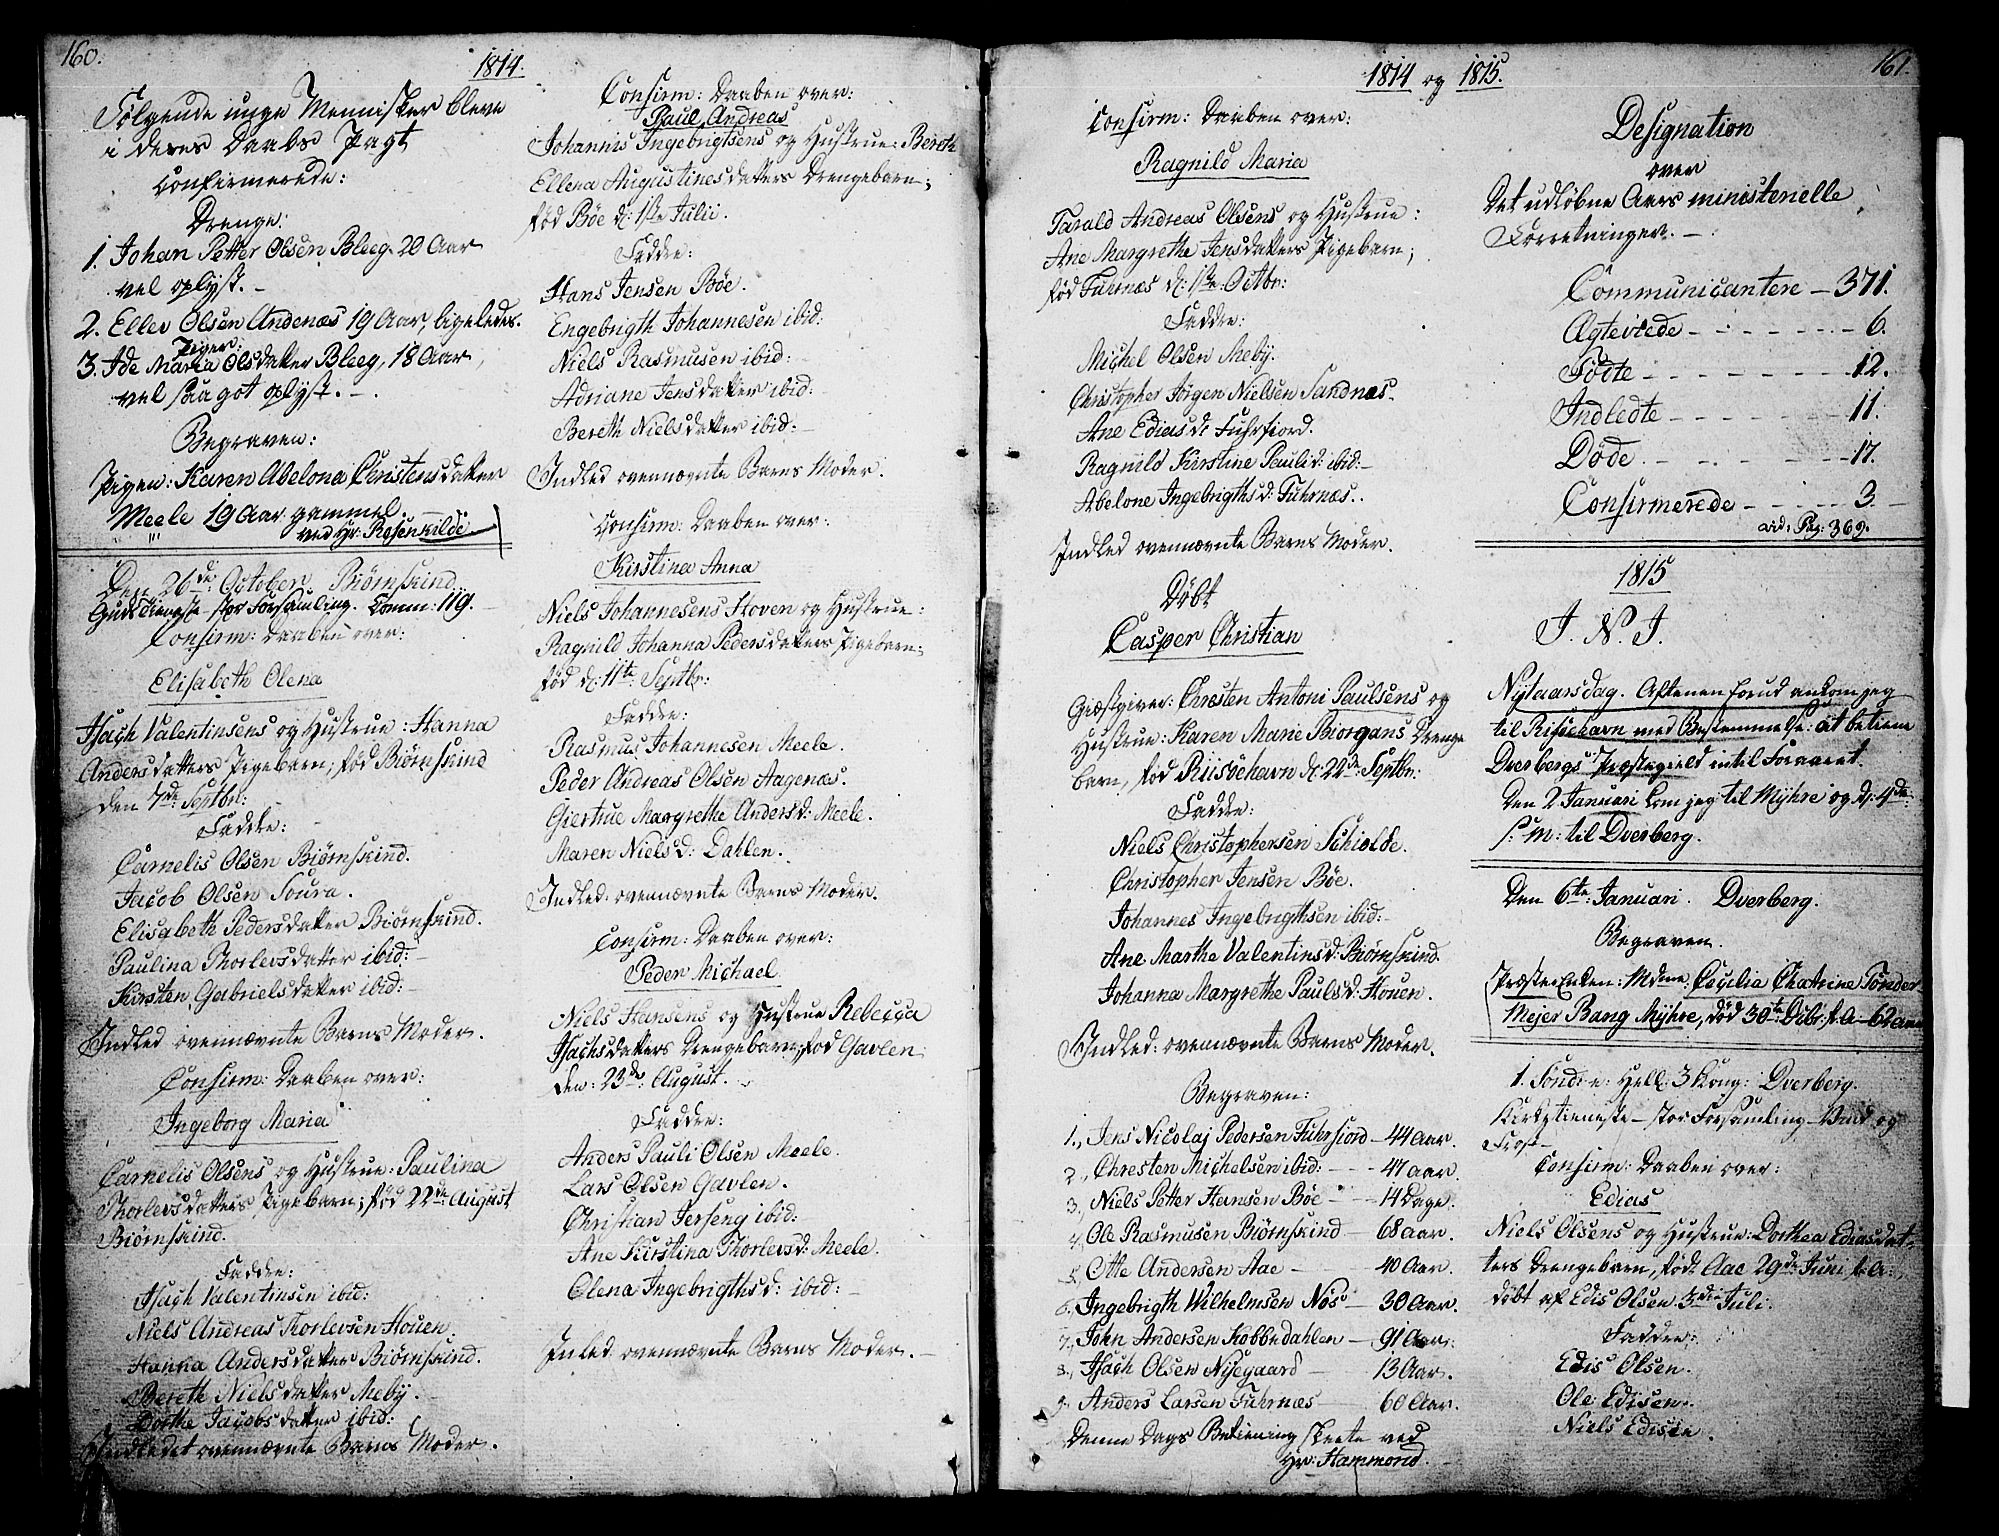 160.
1814.
Følgende unge Mennisker bleve
i deres Daabs Pagt
Confirmerede:
Drenge:
1. Johan Petter Olsen Bleeg. 20 Aar
vel oplyst. -
2. Eller Olsen Andenæs 19 Aar, ligeledes.
Piger:
3. Ide Maria Olsdatter Bleeg, 18 Aar,
vel saagot oplyst. -.
Begraven:
Pigen: Karen Abelona Christensdatter
Meele 19 Aar gammel.
ved Hr: Rosenkilde
Den 26de October Biørnskind
Gudstieneste - stor Forsamling. Comm: 119.
Confirm: Daaben over:
Elisabeth Olena
Isach Valentinsens og Hustrue: Hanna
Andersdatters Pigebarn; fød Biørnskind
den 7de Septbr:
Faddre:
Carnelis Olsen Biørnskind.
Jacob Olsen Soura.
Elisabeth Pedersdatter Biørnskind.
Paulina Thorlevsdatter ibid: -
Kirsten Gabrielsdatter ibid: -
Indled ovennævnte Barns Moder.
Confirm: Daaben over:
Ingeborg Maria
Carnelis Olsens og Hustrue: Paulina
Thorlevsdatters Pigebarn; fød 22de August
Biørnskind.
Faddre:
Isach Valentinsen ibid:
Niels Andreas Thorlevsen Houen
Hanna Andersdatter Biørnskind.
Bereth Nielsdatter Meby.
Dorthe Jacobsdatter ibid:
Indledet ovennævnte Barns Moder.
Confirm: Daaben over:
Paul Andreas
Johannis Ingebrigtsens og Hustrue: Bereth
Ellena Augustinesdatters Drengebarn;
fød Bøe d: 1ste Julii.
Faddre:
Hans Jensen Bøe.
Engebrigth Johannesen ibid:
Niels Rasmusen ibid: -
Adriane Jensdatter ibid:
Bereth Nielsdatter ibid: -
Indled ovennævnte Barns Moder.
Confirm: Daaben over:
Kirstina Anna
Niels Johannesens Hoven og Hustrue:
Ragnild Johanna Pedersdatters Pigebarn;
fød d: 11te Septbr:
Faddre:
Rasmus Johannesen Meele.
Peder Andreas Olsen Aagenæs.
Giertrue Margrethe Andersd: Meele.
Maren Nielsd: Dahlen.
Indled: ovennævnte Barns Moder.
Confirm: Daaben over:
Peder Michael
Niels Hansens og Hustrue Rebecca
Isachsdatters Drengebarn; fød Gavlen
den: 23de August.
Faddre:
Anders Pauli Olsen Meele.
Lars Olsen Gavlen.
Christian Jerseng ibid:
Ane Kirstina Thorlevsd: Meele.
Olena Ingebrigthsd: ibid: -
Inled ovennævnte Barns Moder. -
1814 og 1815.
161.
Confirm: Daaben over:
Ragnild Maria
Tarald Andreas Olsens og Hustrue:
Ane Margrethe Jensdatters Pigebarn;
fød Fuhrnæs d: 1ste Octbr:
Faddre:
Michel Olsen Meby.
Christopher Jørgen Nielsen Sandnæs.
Ane Ediasdr Fuhrfiord.
Ragnild Kirstine Paulid: ibid: -
Abelone Ingebrigthsd: Fuhrnæs.
Indled ovennævnte Barns Moder.
Døbt
Casper Christian
Giæstgiver: Christen Antoni Paulsens og
Hustrue: Karen Marie Biorgans Drenge
barn, fød Riisøehavn d: 22de Septbr:
Faddre:
Niels Christophersen Schiolde.
Christopher Jensen Bøe.
Johannes Ingebrigthsen ibid: -
Ane Marthe Valentinsd: Biørnskind
Johanna Margrethe Paulsd: Houen.
Indled: ovennævnte Barns Moder.
Begraven:
1., Jens Nicolaj Pedersen Fuhrfiord - 44 Aar.
2., Christen Michelsen ibid: - - - 47 Aar.
3., Niels Petter Hansen Bøe - - 14 Dage.
4, Ole Rasmusen Biørnskind - 68 Aar.
5, Otte Andersen Aae - 40 Aar.
6. Ingebrigth Wilhelmsen Nøs - 30 Aar.
7., John Andersen Kobbedahlen - 91 Aar.
8., Isach Olsen Nÿegaard - 13 Aar.
9. Anders Larsen Fuhrnæs - 60 Aar.
Denne Dags Betiening skeete ved
Hr: Hammond.
Designation
over
Det udløbne Aars ministerielle
Forretninger. -
Communicantere - 371.
Ægteviede - - - - - - 6.
Fødte - - - - - - - 12.
Indledte - - - - - - 11.
Døde. - - - - - - - 17.
Confirmerede - - - - 3.
vid: Pag: 369.
1815
I. N. J.
Nytaarsdag. Aftenen forud ankom jeg
til Risøehavn med Bestemmelse: at betiene
Dverbergs Præstegield intil Foraaret.
Den 2 Januari kom jeg til Myhre og d: 4de
s: m: til Dverberg.
Den 6te Januari. Dverberg.
Begraven.
Præste Enken: Mdme Cecilia Chatrine Tønder
Mejer Bang Myhre, død 30te Dcbr. f. A - 62 aar
1. Sønd: e: Hell: 3 Kong: Dverberg.
Kirketieneste - stor Forsamling - Vind og
Frost -
Confirm: Daaben over:
Edias
Niels Olsens og Hustrue: Dorthea Ediasdat-
ters Drengebarn, født Aae 29de Juni f. A:
døbt af Edis Olsen 3die Juli.
Faddre:
Edis Olsen.
Ole Edisen.
Niels Edisen.